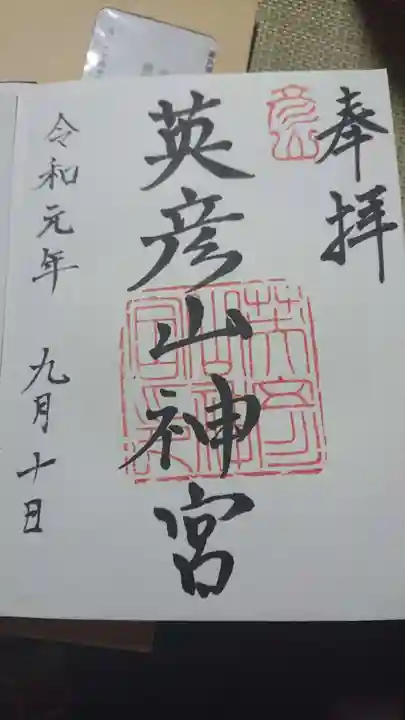 奉拝
英彦山神宮
令和元年 九月十日